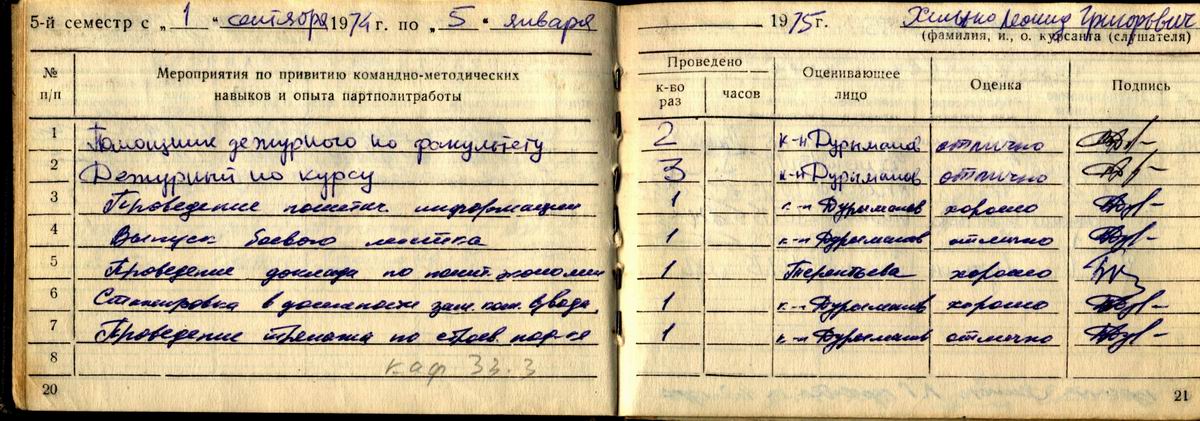 5-й семестр с „ 1 “ сентября 1974 г. по „ 5 “ января 1975 г. Леонид Григорьвич
(фамилия, и., о. курсанта (слушателя)
№ п/п Мероприятия по привитию командно-методических навыков и опыта партполитработы Проведено к-во раз часов Оценивающее лицо Оценка Подпись
1 Помощник дежурного по факультету 2 к-н Дурыманов отлично
2 Дежурный по курсу 3 к-н Дурыманов отлично
3 Проведение политич. информации 1 к-н Дурыманов хорошо
4 Выпуск боевого листка 1 к-н Дурыманов отлично
5 Проведение доклада по полит. экономии 1 Терентьева хорошо
6 Стажировка в должности зам. ком. взвода 1 к-н Дурыманов хорошо
7 Проведение тренажа по строев. под-ке 1 к-н Дурыманов отлично
8 каф 33.3
20 21